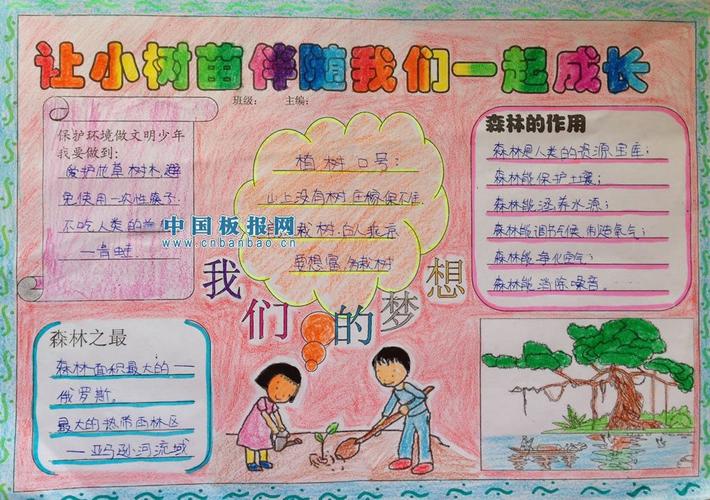 让小树苗伴随我们一起成长
班级: 主编:
保护环境做文明少年
我要做到:
爱护花草树木,避
免使用一次性筷子.
不吃人类的
—青蛙
中国板报网
www.cnbanbao.cn
植树口号:
山上没有树,庄稼保不住
栽树,后人乘凉
要想富,多栽树
森林的作用
森林是人类的资源宝库;
森林能保护土壤;
森林能涵养水源;
森林能调节气候,制造氧气;
森林能净化空气;
森林能消除噪音.
我们的梦想
森林之最
森林面积最大的—
俄罗斯.
最大的热带雨林区
—亚马逊河流域